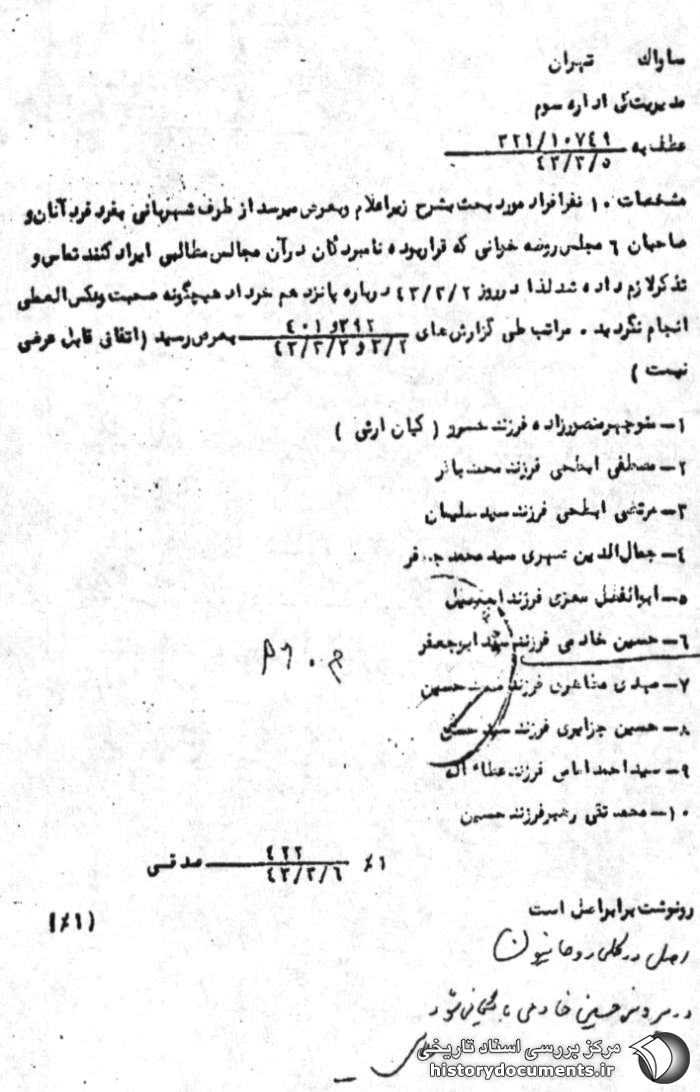 ساواک تهران
مدیریت کل اداره سوم
عطف به ۳۲۱/۱۰۷۴۹
۴۳/۳/۵
مشخصات ۱۰ نفر افراد مورد بحث بشرح زیر اعلام و بعرض میرسد از طرف شهربانی بفرد فرد آنان و
صاحبان ۶ مجلس روضه خوانی که قرار بوده نامبردگان در آن مجالس مطالبی ایراد کنند تماس و
تذکر لازم داده شد لذا در روز ۴۳/۳/۲ درباره پانزدهم خرداد هیچگونه صحبت و عکس العملی
انجام نگردید . مراتب طی گزارش های ۳۹۲ و ۴۰۱ بعرض رسید (اتفاق قابل عرضی
۴۳/۳/۲ و ۳/۲
نیست )
۱- منوچهر منصورزاده فرزند خسرو ( کیان ارثی )
۲- مصطفی ابطحی فرزند محمد باقر
۳- مرتضی ابطحی فرزند سید سلیمان
۴- جمال الدین صهری سید محمد جعفر
۵- ابوالفضل معزی فرزند
۶- حسین خادمی فرزند سید ابوجعفر
۷- مهدی مظاهری فرزند محمد حسین
۸- حسین جزایری فرزند سید حسن
۹- سید احمد امامی فرزند عطاء اله
۱۰- محمد تقی رهبر فرزند حسین
۱٪ ۴۲۲ صدقی
۴۳/۳/۶
رونوشت برابر اصل است
(۱٪)
اصل در کلی روحانیون
در پرونده حسین خادمی بایگانی شود
مرکز بررسی اسناد تاریخی
historydocuments.ir